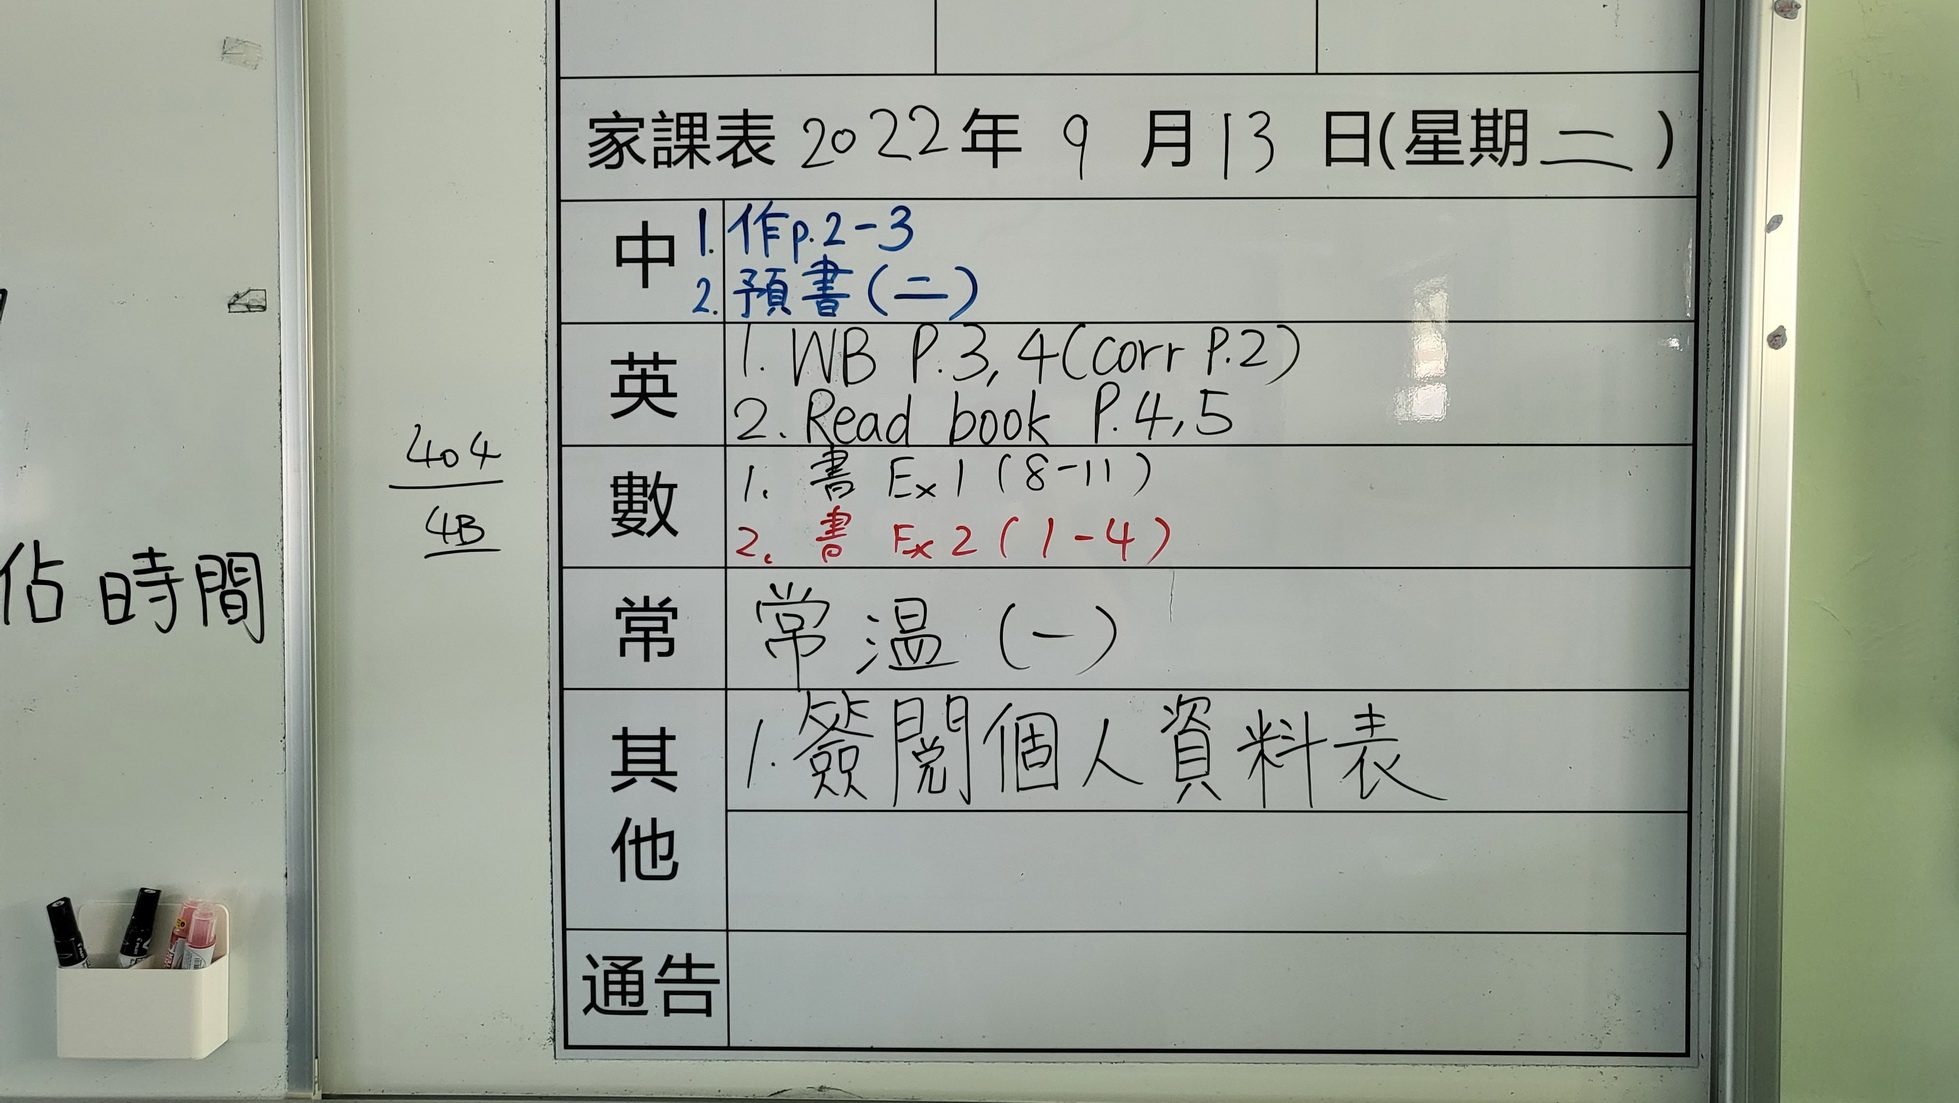 家課表 2022年 9 月 13 日(星期 二 )
中
1. 作p.2-3
2. 預書(二)
英
1. WB P.3, 4 (corr P.2)
2. Read book P.4,5
數
1. 書 Ex 1 (8-11)
2. 書 Ex 2 (1-4)
常
常溫 (一)
其他
1. 簽閱個人資料表
通告
404
4B
佔時間